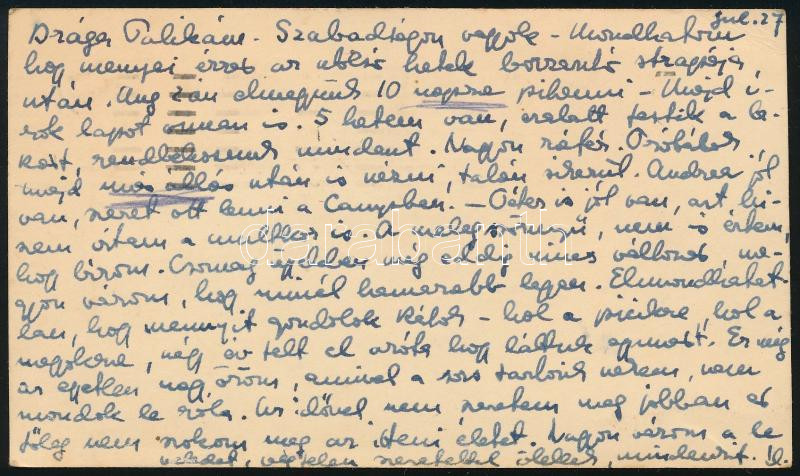 júl. 27
Drága Palikám - Szabadságon vagyok - Mondhatom
hogy mennyei érzés az utolsó hetek borzasztó strapája
után. Aug. elmegyünk 10 napra pihenni - Majd í-
rok lapot onnan is. 5 hetem van, ezalatt festik a la-
kást, rendbehozunk mindent. Nagyon ráfér. Próbálok
majd más állás után is nézni, talán sikerül. Andrea jól
van, szeret ott lenni a Campben. - Péter is jól van, azt hi-
szem írtam a multkor is. A meleg szörnyű, nem is értem,
hogy bírom. Csomag ügyében még eddig nincs válasz, na-
gyon várom, hogy minél hamarabb legyen. Elmondhatat-
lan, hogy mennyit gondolok Rátok - hol a picikre, hol a
nagyokra, négy év telt el azóta hogy láttuk egymást. Ez még
az egyetlen nagy öröm, amivel a sors tartozik nekem, nem
mondok le róla. Az idővel nem szeretem meg jobban és
főleg nem szokom meg az itteni életet. Nagyon várom a le
veledet, végtelen szeretettel ölellek, mindenkit.
darabanth